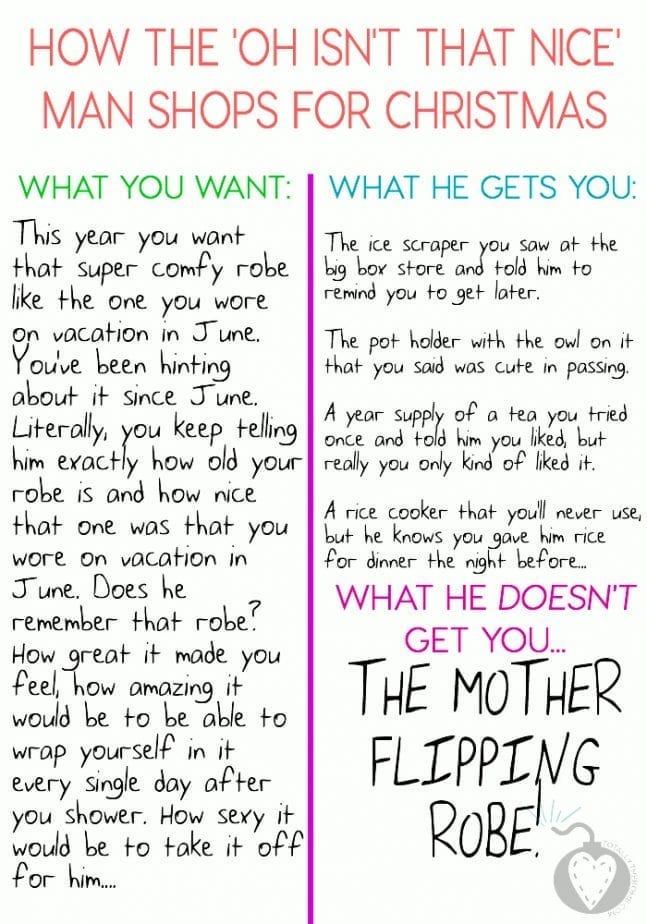 HOW THE 'OH ISN'T THAT NICE'
MAN SHOPS FOR CHRISTMAS
WHAT YOU WANT:
This year you want
that super comfy robe
like the one you wore
on vacation in June.
You've been hinting
about it since June.
Literally, you keep telling
him exactly how old your
robe is and how nice
that one was that you
wore on vacation in
June. Does he
remember that robe?
How great it made you
feel, how amazing it
would be to be able to
wrap yourself in it
every single day after
you shower. How sexy it
would be to take it off
for him....
WHAT HE GETS YOU:
The ice scraper you saw at the
big box store and told him to
remind you to get later.
The pot holder with the owl on it
that you said was cute in passing.
A year supply of a tea you tried
once and told him you liked, but
really you only kind of liked it.
A rice cooker that you'll never use,
but he knows you gave him rice
for dinner the night before...
WHAT HE DOESN'T
GET YOU...
THE MOTHER
FLIPPING
ROBE!
TOTALLYTHEBOMB.COM